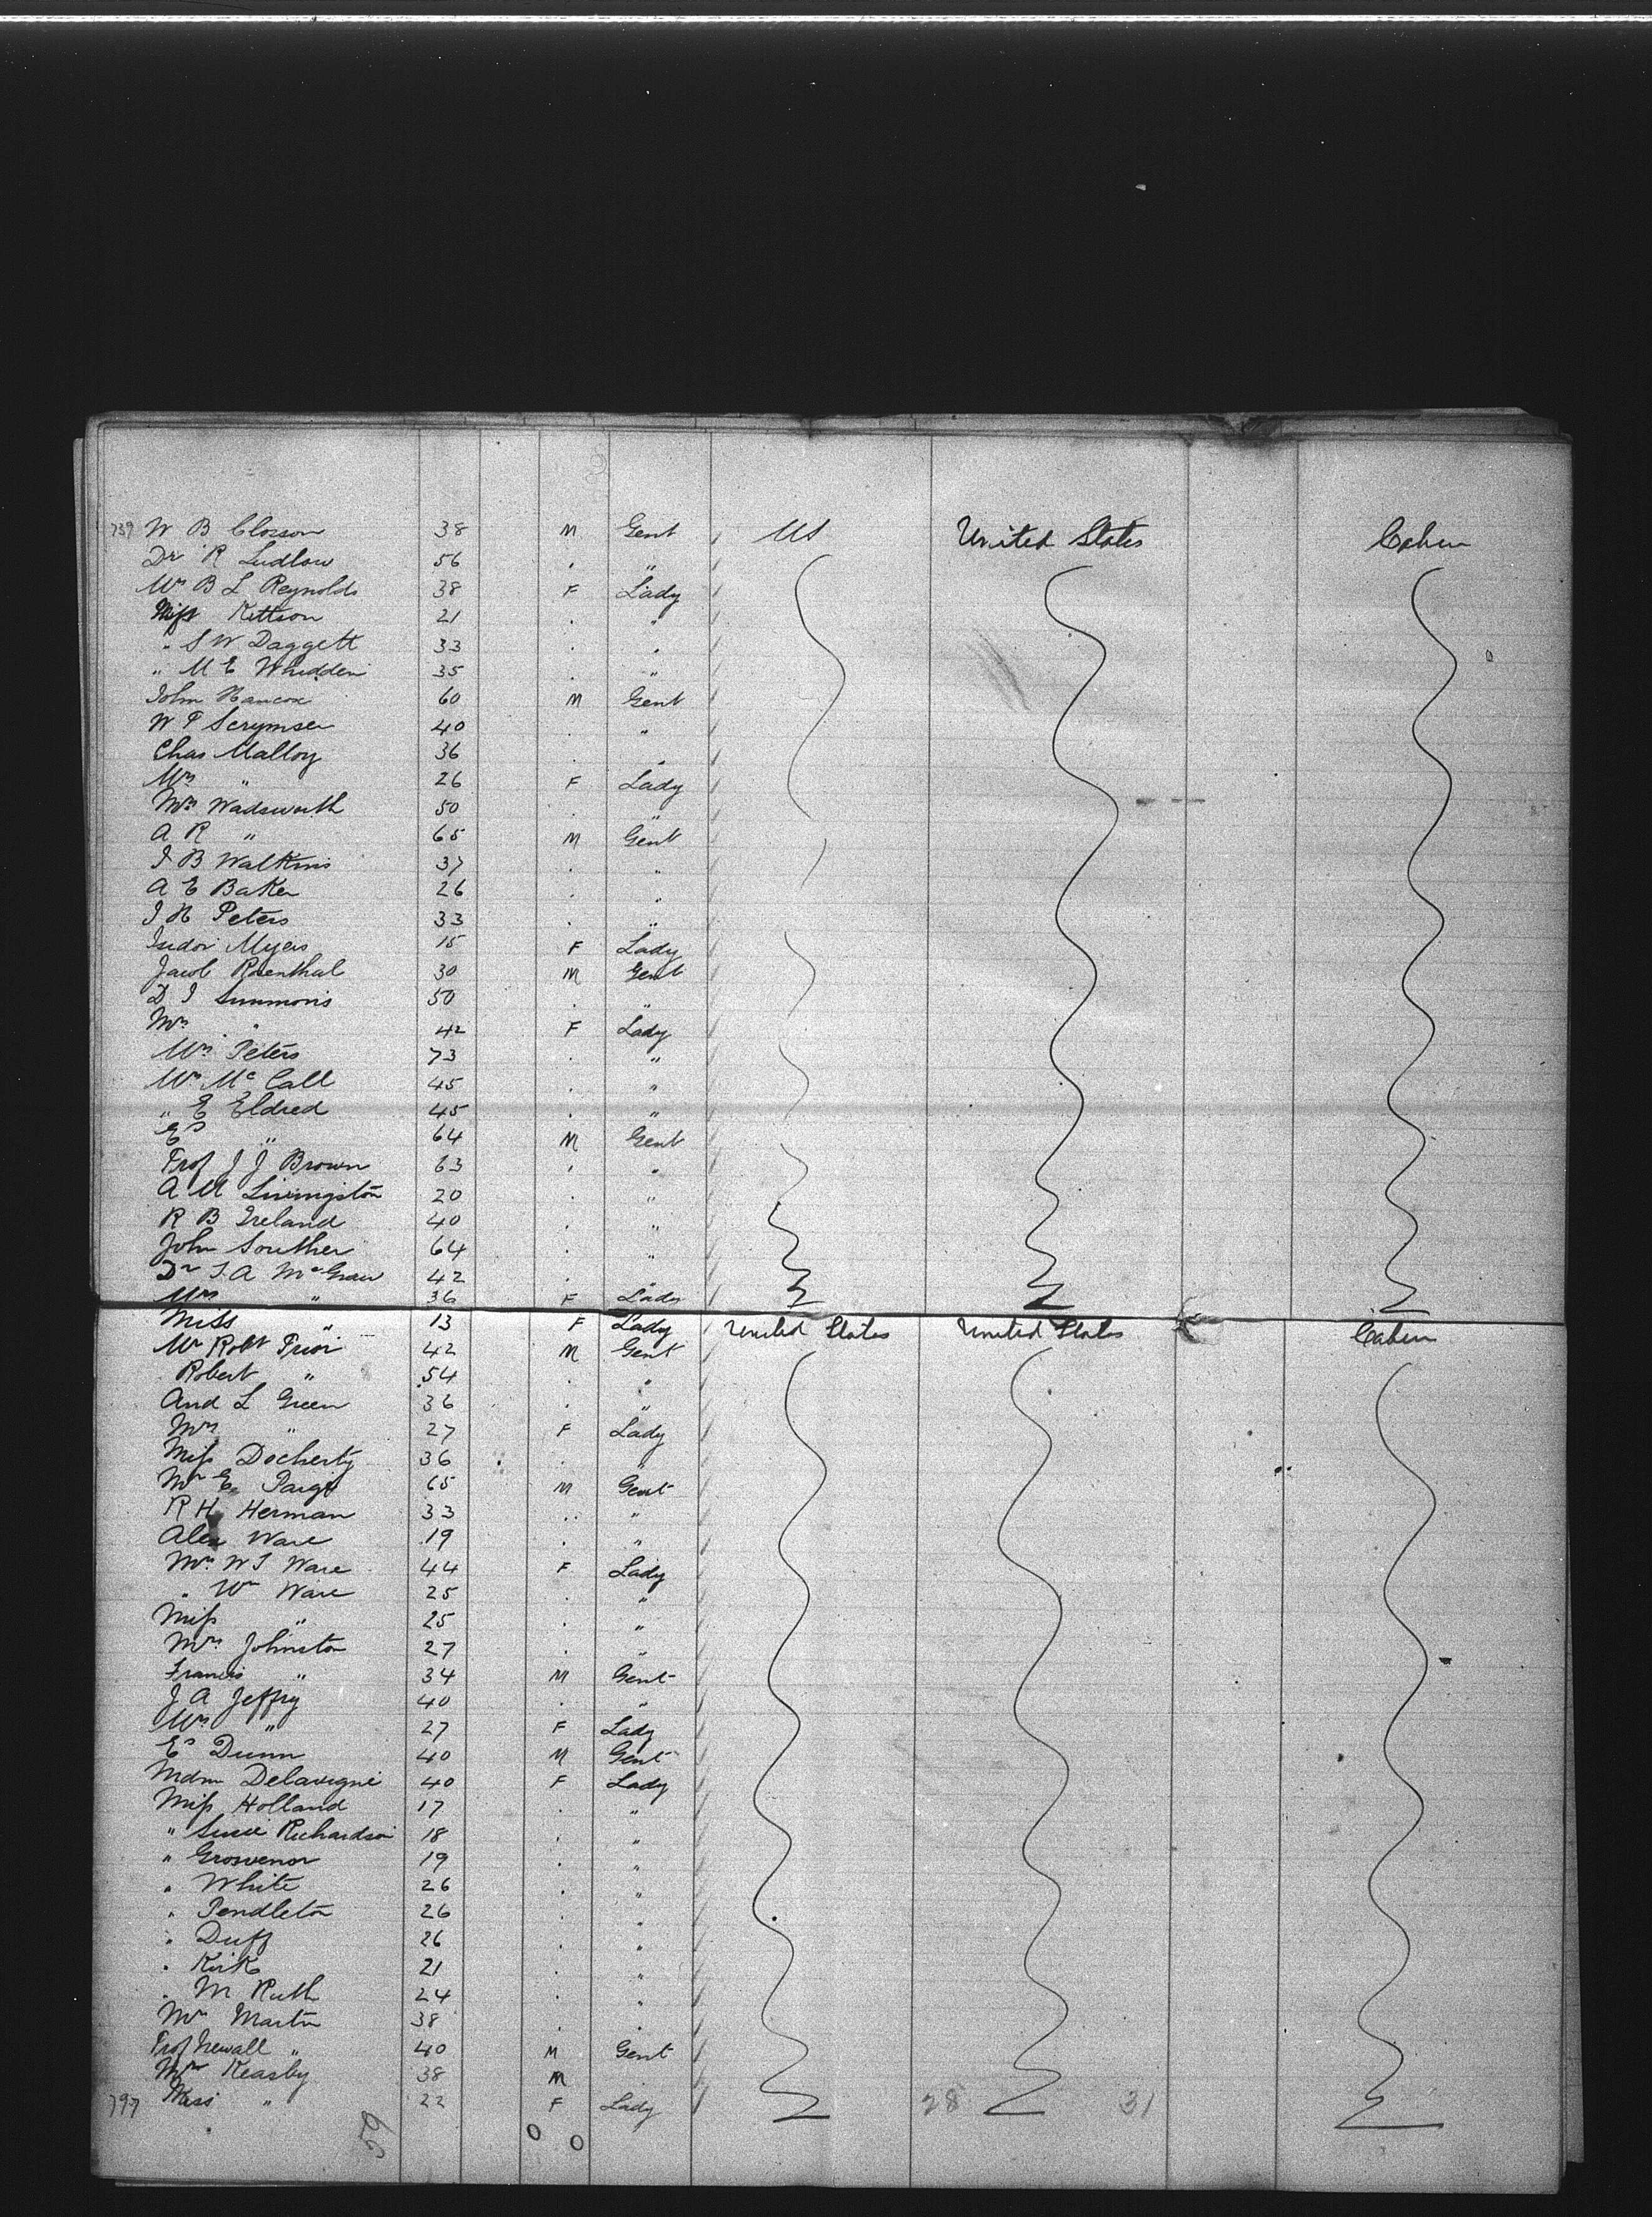 739 W B Closson 38 M Gent US United States Cabin
Dr R Ludlow 56 . "
Mrs B L Reynolds 38 F Lady
Miss Kittson 21 . "
" S W Daggett 33 . "
" M E Whidden 35 . "
John Hancox 60 M Gent
W P Scrymser 40 . "
Chas Malloy 36 . "
Mrs " 26 F Lady
Mrs Wadsworth 50 . "
A R " 65 M Gent
J B Watkins 37 . "
A E Baker 26 . "
J H Peters 33 . "
Isidor Myers 15 F Lady
Jacob Rosenthal 30 M Gent
D J Simmons 50 . "
Mrs " 42 F Lady
Mrs Peters 73 . "
Mrs Mc Call 45 . "
" E Eldred 45 . "
Ed " 64 M Gent
Prof J J Brown 63 . "
A M Livingston 20 . "
R B Ireland 40 . "
John Souther 64 . "
Dr T. A McGraw 42 . "
Mrs " 36 F Lady
Miss " 13 F Lady United States United States Cabin
Mr Robt Prior 42 M Gent
Robert " 54 . "
And L Green 36 . "
Mrs " 27 F Lady
Miss Docherty 36 . "
Mr E. Paige 65 M Gent
R H Herman 33 . "
Alex Ware 19 . "
Mrs W S Ware 44 F Lady
" Wm Ware 25 . "
Miss " 25 . "
Mrs Johnston 27 . "
Francis " 34 M Gent
J A Jeffry 40 . "
Mrs " 27 F Lady
Ed Dunn 40 M Gent
Mdm Delavigne 40 F Lady
Miss Holland 17 . "
" Susie Richardson 18 . "
" Grosvenor 19 . "
" White 26 . "
" Pendleton 26 . "
" Duff 26 . "
" Kirk 21 . "
" M Ruth 24 . "
Mrs Martin 38 . "
Prof Newall " 40 M Gent
Mr Keasby 38 M .
797 Miss " 22 F Lady 28 31
59 0 0